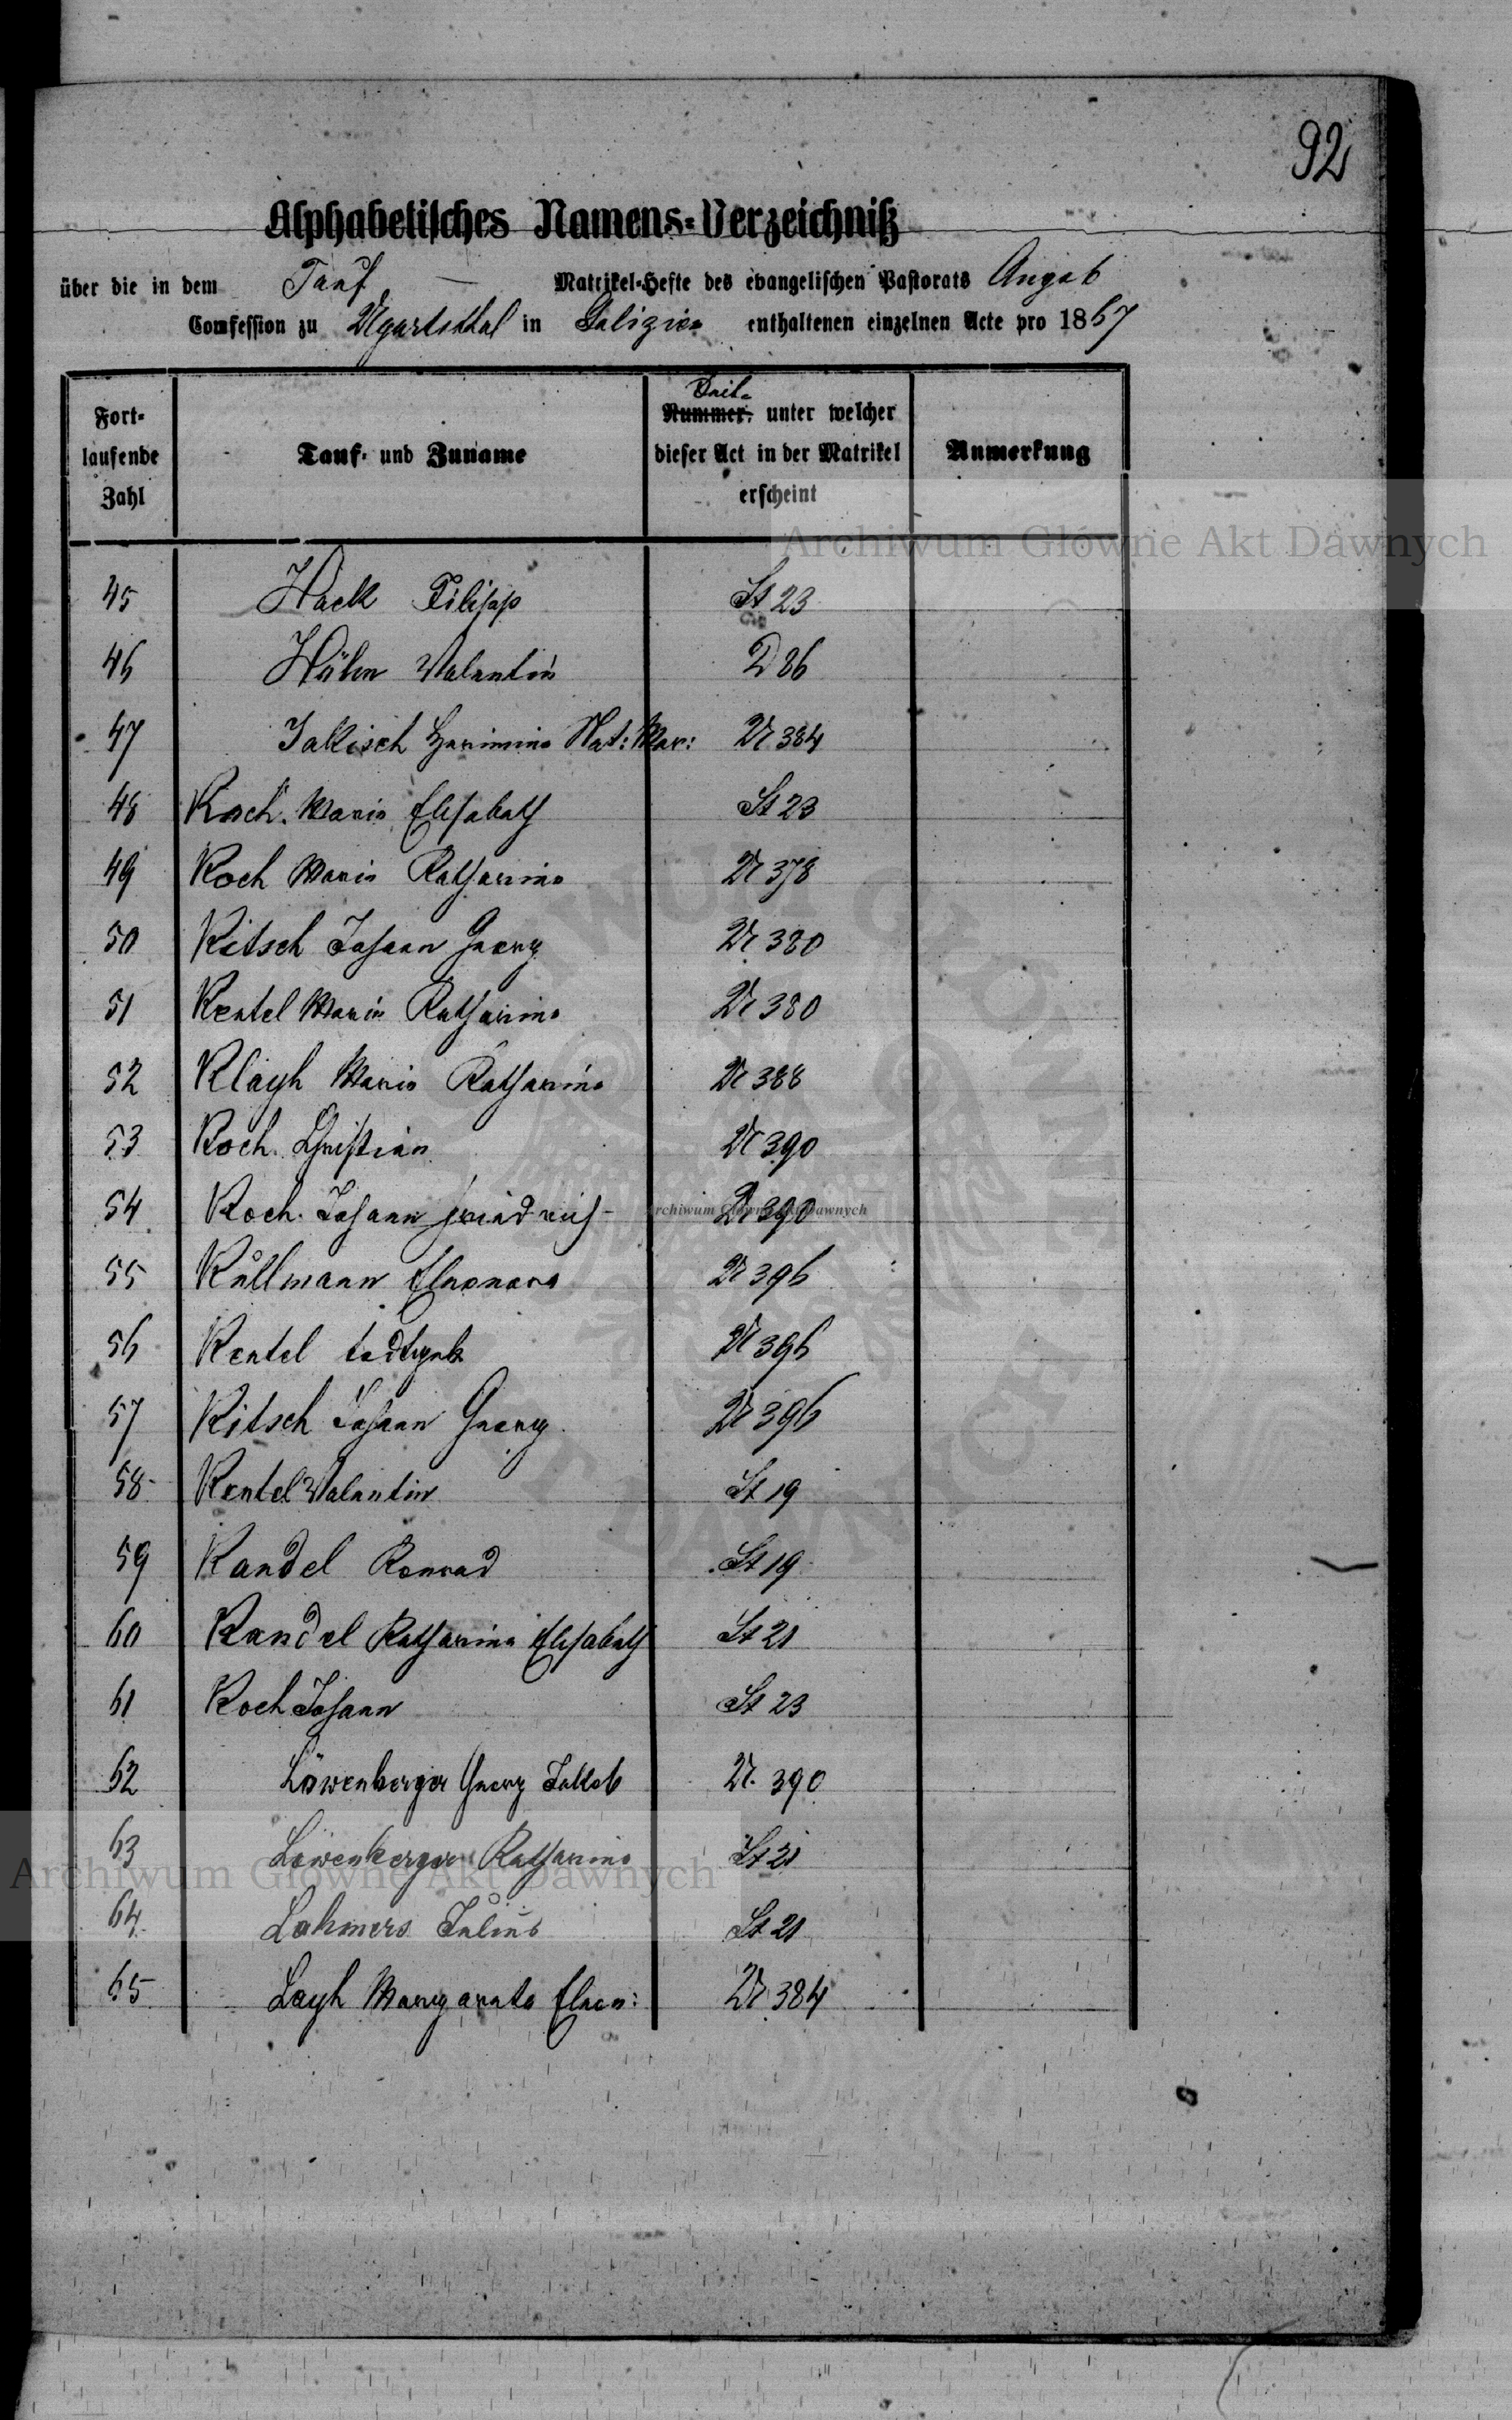 92
Alphabetisches Namens-Verzeichniß
über die in dem Tauf — Matrikel-Hefte des evangelischen Pastorats Augsb
Confession zu Ugartsthal in Galizien enthaltenen einzelnen Acte pro 1867
Fort-
laufende
Zahl
Tauf- und Zuname
Seite
Nummer, unter welcher
dieser Act in der Matrikel
erscheint
Anmerkung
45 Hack Filipp St 23
46 Hühn Valentin D 86
47 Jakisch Hermine Nat: Mar: U 384
48 Koch Maria Elisabeth St 23
49 Koch Maria Katharina U 378
50 Kitsch Johann Georg U 380
51 Kentel Maria Katharina U 380
52 Klayh Maria Katharina U 388
53 Koch Christian U 390
54 Koch Johann Friedrich U 390
55 Kullmann Eleonora U 396
56 Kentel U 396
57 Kitsch Johann Georg U 396
58 Kentel Valentin St 19
59 Kandel Konrad St 19
60 Kandel Katharina Elisabeth St 21
61 Koch Johann St 23
62 Löwenberger Georg Jakob U. 390
63 Löwenberger Katharina St 21
64 Lahmers Julius St 21
65 Layh Margareta Eleon: U 384
Archiwum Główne Akt Dawnych
Archiwum Główne Akt Dawnych
Archiwum Główne Akt Dawnych